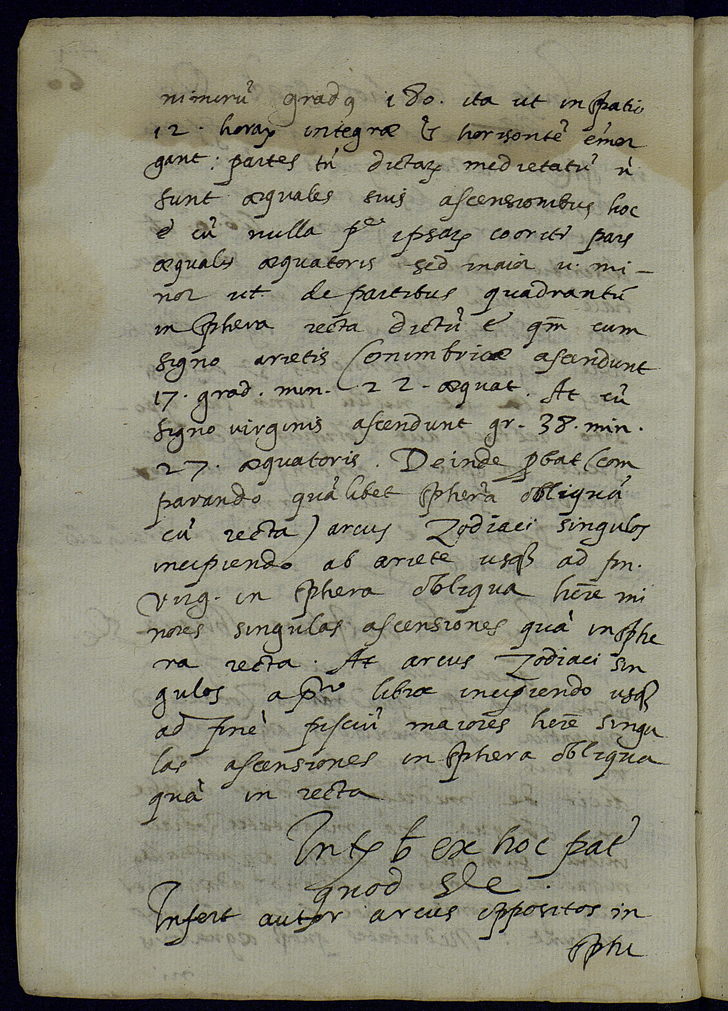 nimirũ gradꝰ 180. ita ut in spatio
12. horaꝝ integræ horisontẽ emer
gant: partes tñ dictaꝝ medietatũ ñ
sunt æquales suis ascensionibus hoc
ẽ cũ nulla ipsaꝝ cooritr̃ pars
æqualis æquatoris sed maior u. mi-
nor ut. de partibus quadrantũ
in sphera recta dictũ ẽ qm̃ cum
signo arietis Conimbricæ ascendunt
17. grad. min. 22. æquat. At cũ
signo virginis ascendunt gr. 38. min.
27. æquatoris. Deinde ꝓbat (com
parando quãlibet spherã obliquã
cũ recta) arcus Zodiaci singulos
incipiendo ab ariete usqꝫ ad fin.
Virg. in sphera obliqua hẽre mi
nores singulas ascensiones quã in sphe
ra recta. At arcus Zodiaci sin
gulos a pri͂o libræ incipiendo usqꝫ
ad finẽ pisciũ maiores hẽre singu
las ascensiones in sphera obliqua
quã in recta
ex hoc pat
quod
Infert autor arcus oppositos in
sphe